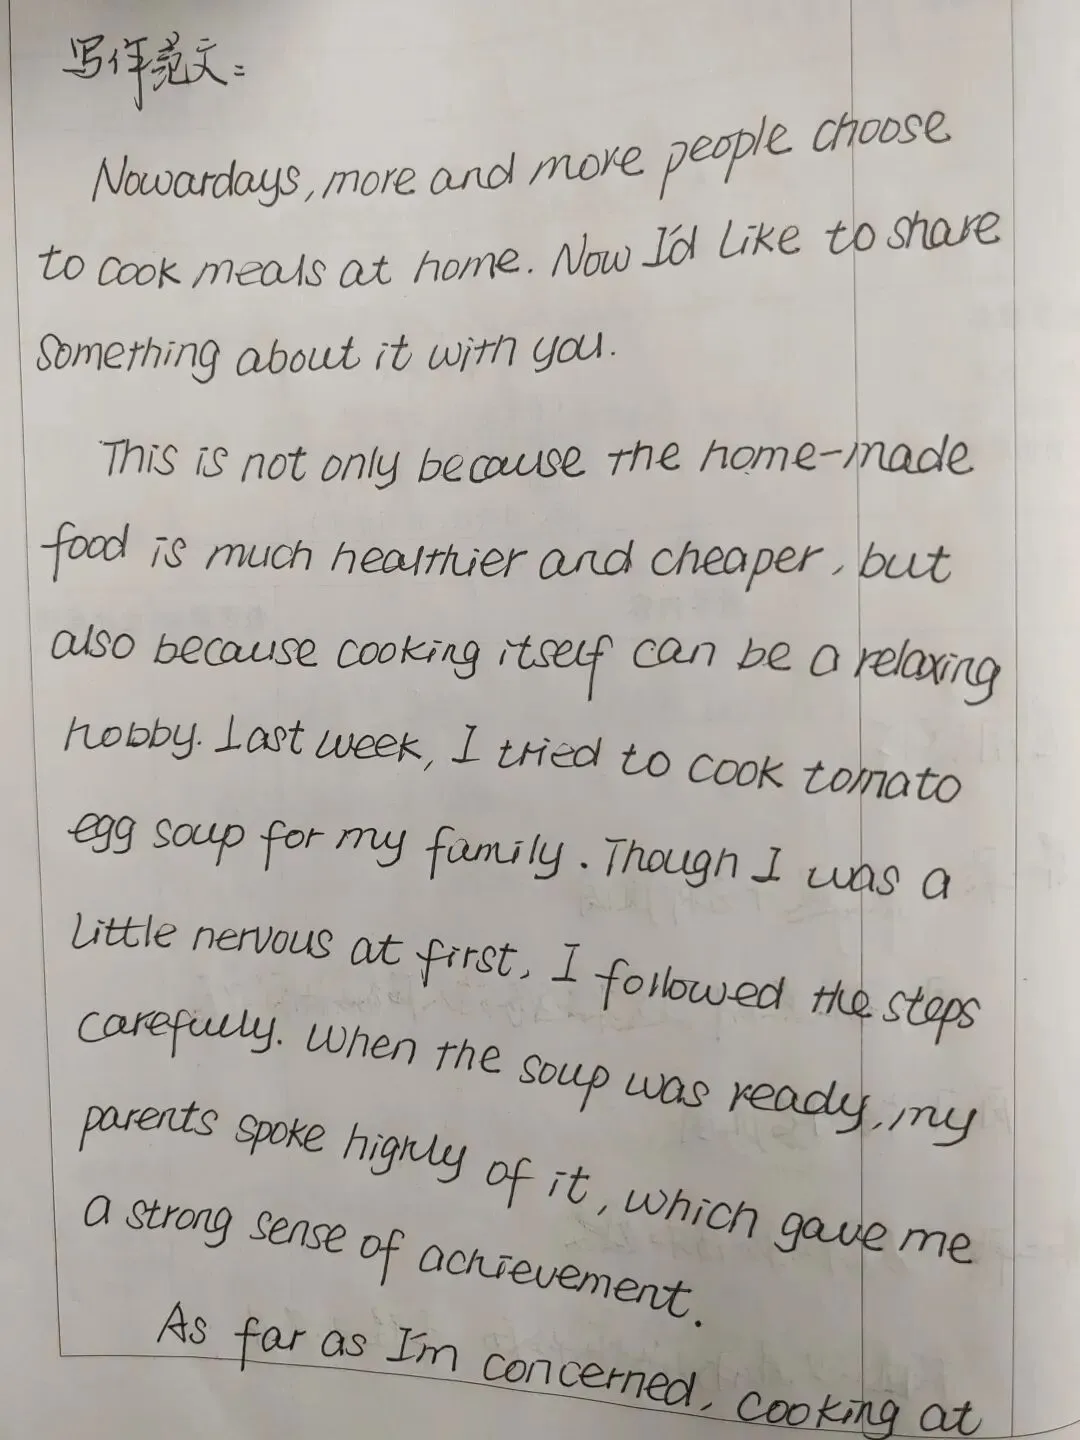 写作范文:
Nowardays, more and more people choose
to cook meals at home. Now I'd like to share
something about it with you.
This is not only because the home-made
food is much healthier and cheaper, but
also because cooking itself can be a relaxing
hobby. Last week, I tried to cook tomato
egg soup for my family. Though I was a
little nervous at first, I followed the steps
carefully. When the soup was ready, my
parents spoke highly of it, which gave me
a strong sense of achievement.
As far as I'm concerned, cooking at